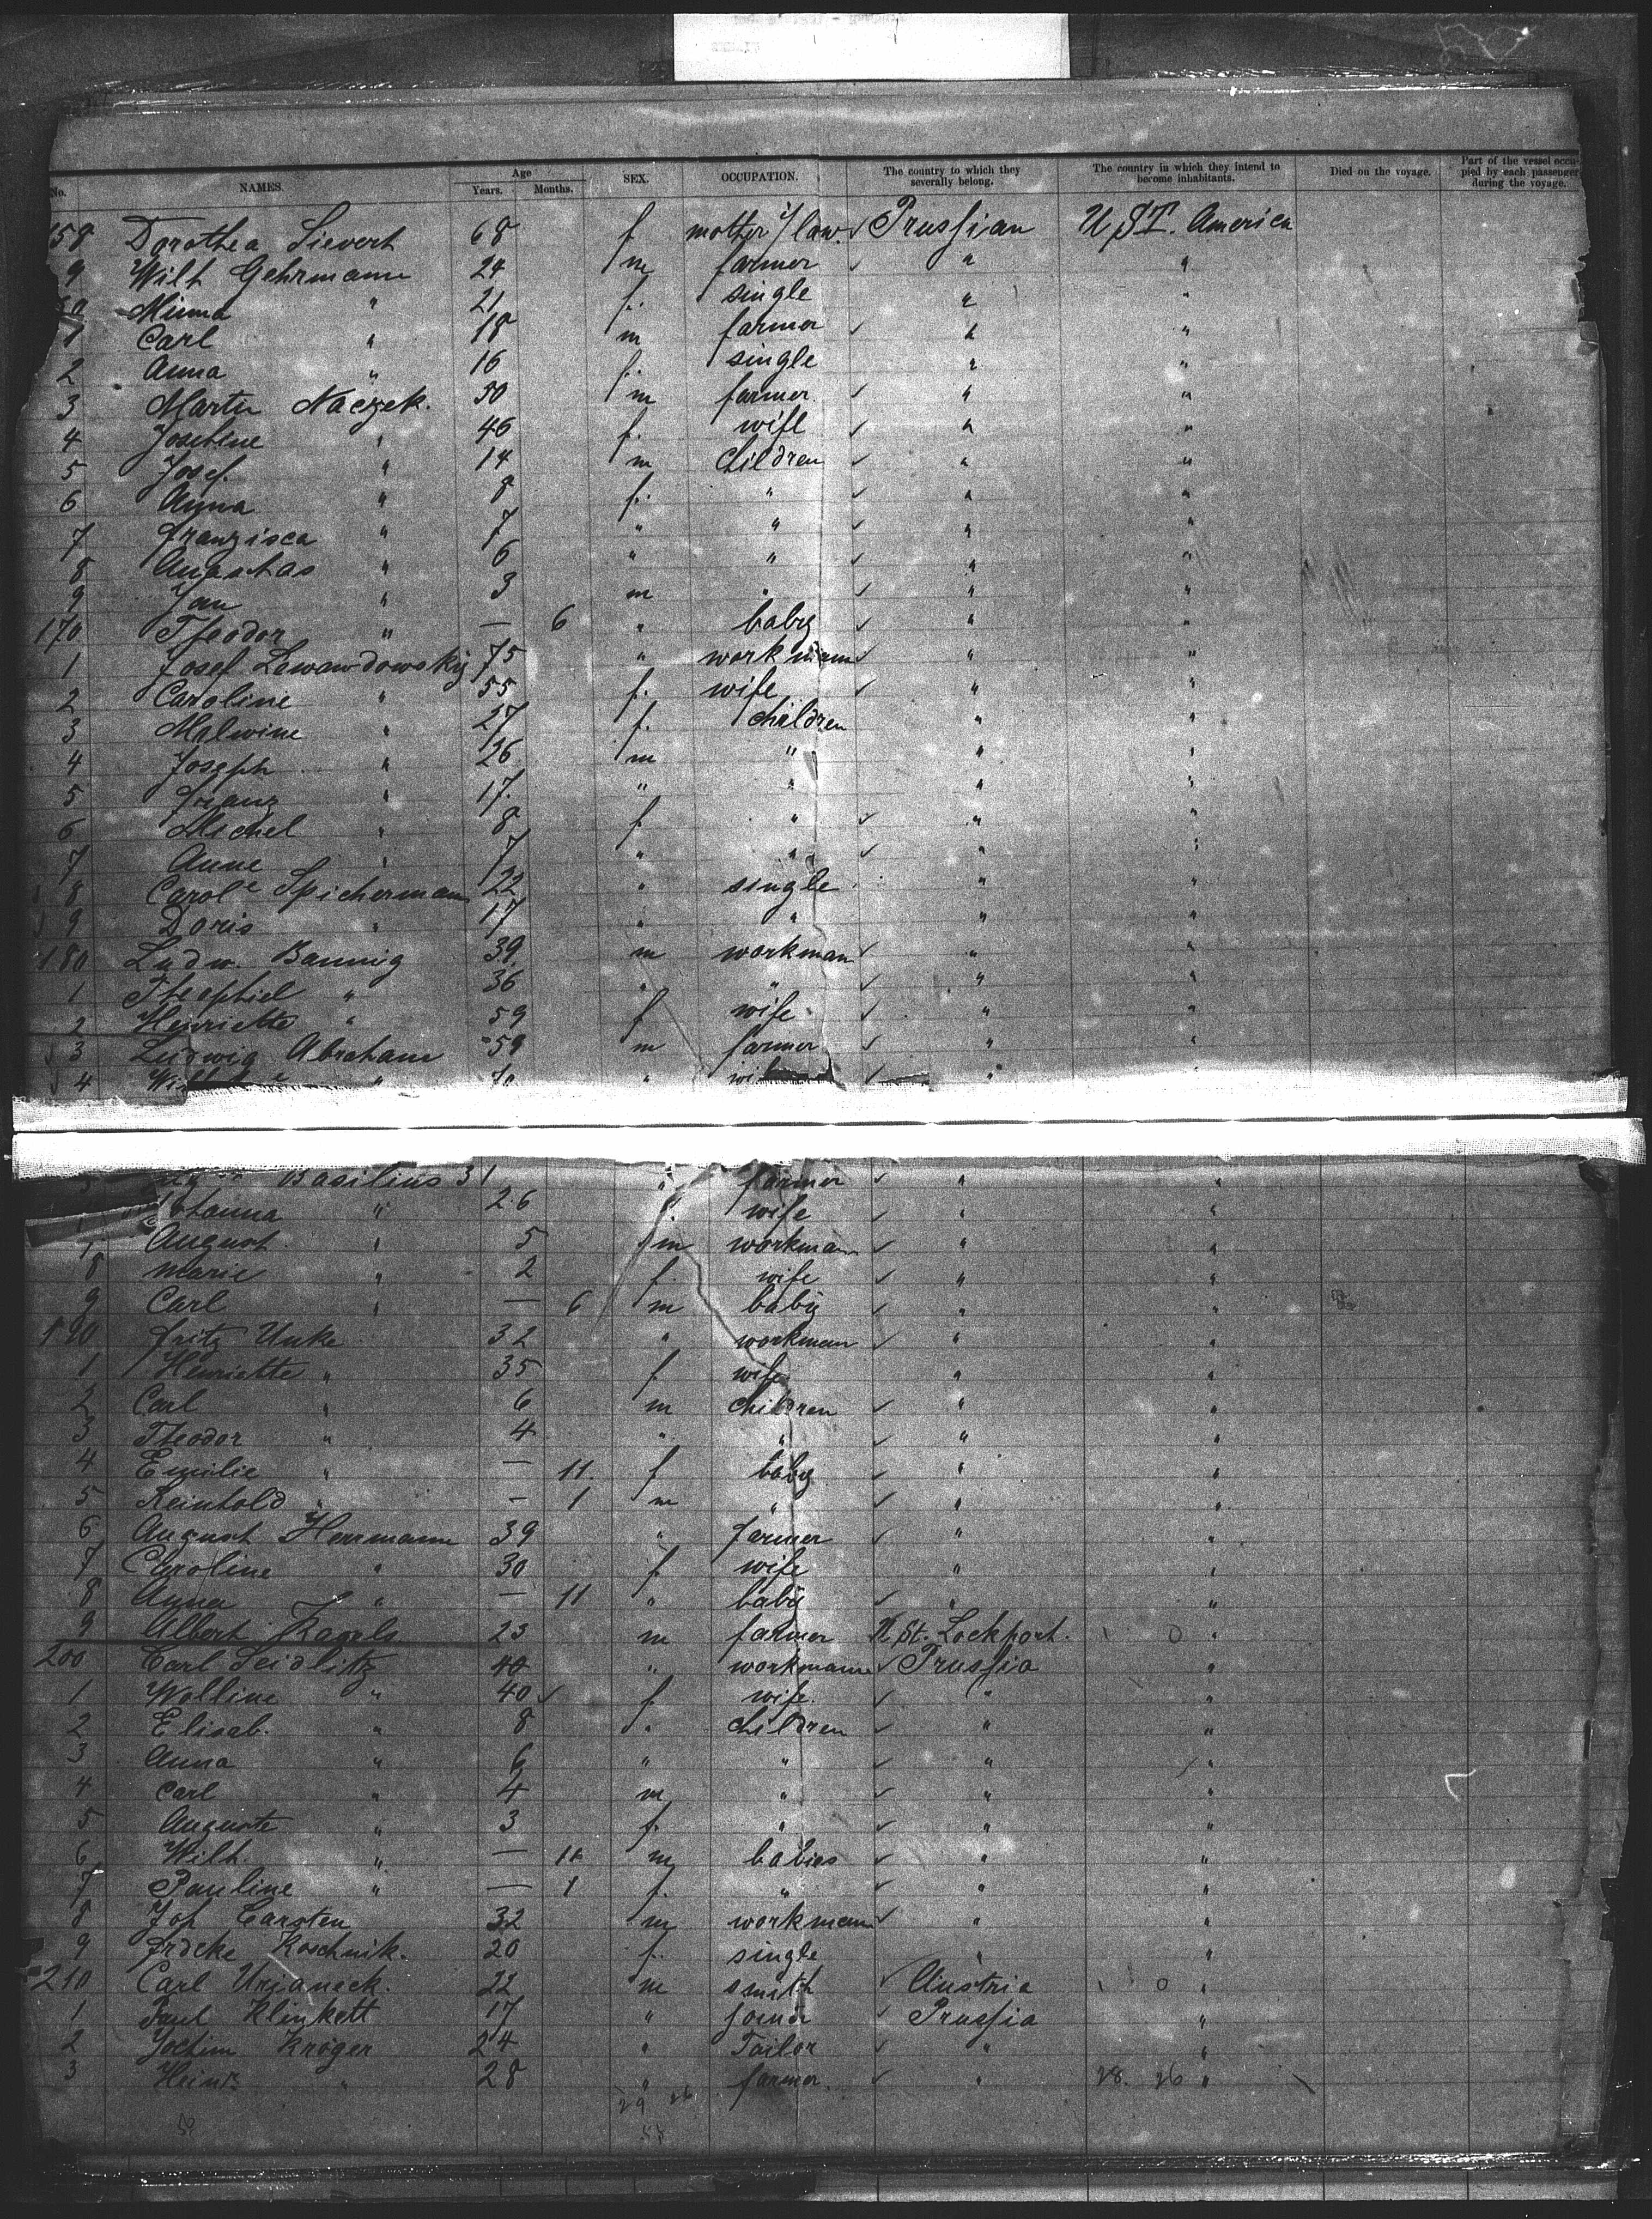 No. NAMES. Age Years. Months. SEX. OCCUPATION. The country to which they severally belong. The country in which they intend to become inhabitants. Died on the voyage. Part of the vessel occupied by each passenger during the voyage.
158 Dorothea Sievert 68 f mother i/law ✓ Prussian U St. America
9 Wilh Gehrmann 24 m farmer ✓ " "
Minna " 21 f. single " "
1 Carl " 18 m farmer ✓ " "
2 Anna " 16 f. single " "
3 Martin Naczek. 50 m farmer. ✓ " "
4 Josefine " 46 f. wife ✓ " "
5 Josef. " 14 m Children ✓ " "
6 Anna " 8 f. " ✓ " "
7 franzisca " 7 " " ✓ " "
8 Anastas " 6 " " ✓ " "
9 Jan " 3 m " ✓ " "
170 Theodor " — 6 " baby ✓ " "
1 Josef Lewawdowsky 75 " workmann ✓ " "
2 Caroline " 55 f. wife ✓ " "
3 Malwine " 27 f. children " "
4 Joseph " 26 m " " "
5 franz " 17. " " " "
6 Michel " 8 f. " ✓ " "
7 Anne " 7 " " ✓ " "
8 Carole Spichermann 22 " single " "
9 Doris " 17 " " " "
180 Ludw. Bannig 39. m workman ✓ " "
1 Theophiel " 36 " " ✓ " "
2 Henriette " 59 f wife ✓ " "
3 Ludwig Abraham 59 m farmer ✓ " "
4 " " ✓ "
Basilius 31 " farmer ✓ " "
Johanna " 26 f. wife ✓ " "
August " 5 m workman ✓ " "
8 Marie " 2 f. wife ✓ " "
9 Carl " — 6 m baby ✓ " "
190 fritz Unke 32 " workman ✓ " "
1 Henriette " 35 f wife " "
2 Carl " 6 m children ✓ " "
3 Theodor " 4 " " ✓ " "
4 Emilie " — 11. f baby ✓ " "
5 Reinhold " — 1 m " ✓ " "
6 August Herrmann 39 " farmer ✓ " "
7 Caroline " 30 f. wife " "
8 Anna " — 11 " baby ✓ " "
9 Albert Kagels 23 m farmer N. St. Lockport. 0 "
200 Carl Seidlitz 40 " workmann ✓ Prussia "
1 Wolline " 40 ✓ f. wife. ✓ " "
2 Elisab. " 8 " children ✓ " "
3 Anna " 6 " " ✓ " "
4 Carl " 4 m " ✓ " "
5 Auguste " 3 f. " ✓ " "
6 Wilh. " — 11 m babies ✓ " "
7 Pauline " — 1 f. " ✓ " "
8 Joh Carsten 32 m workmann ✓ " "
9 frdcke Koschnik. 20 f. single " "
210 Carl Urianack. 22 m smith ✓ Austria 0 "
1 Paul Klinkett 17 " joiner ✓ Prussia "
2 Jochim Kröger 24 " Tailor ✓ " "
3 Heinr. " 28 " farmer. ✓ " 28. 26 "
29 26